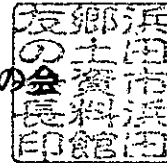 浜田市浜田
郷土資料館
友の会長印
の会